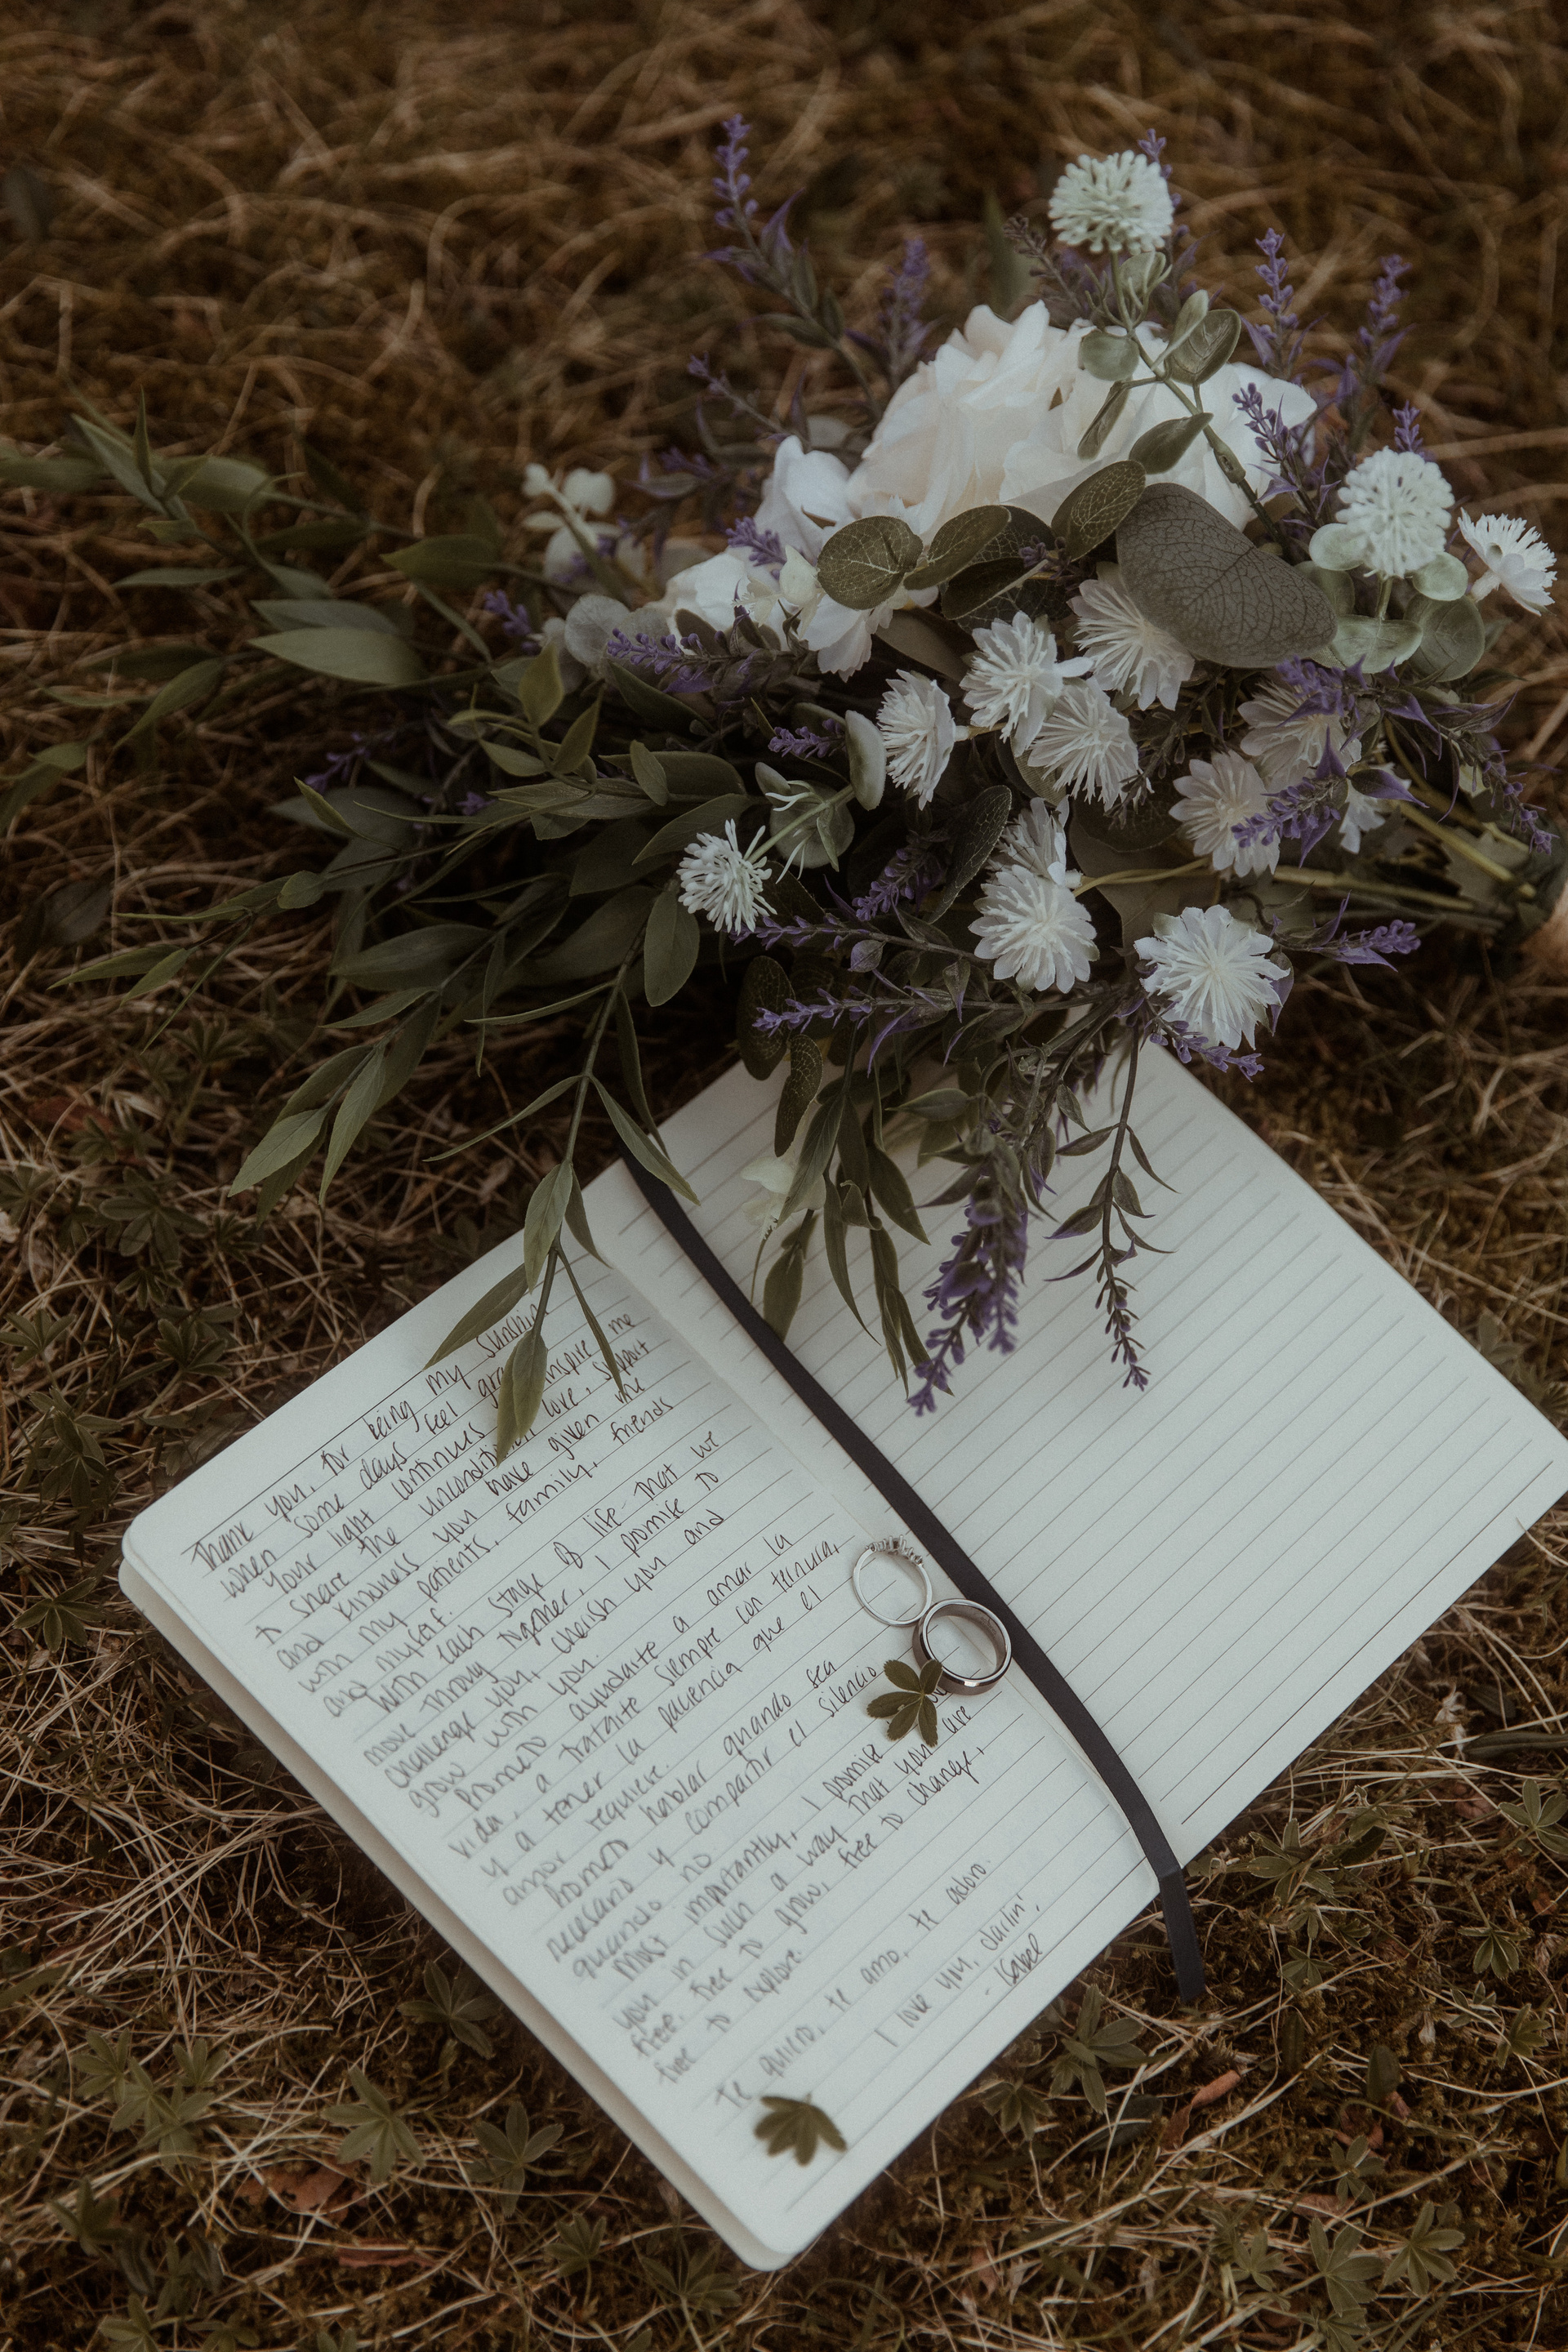 Thank you, for being my sunshine
when some days feel gray inspire me
Your light continues love, support
to share the unconditional
and kindness you have given me
with my patients, family, friends
and myself.
With each stage of life that we
move through together, I promise to
challenge you, cherish you and
grow with you.
Prometo ayudarte a amar la
vida, a tratarte siempre con ternura,
y a tener la paciencia que el
amor requiere.
Prometo hablar quando sea
necesario y compartir el silencio
quando no
Most importantly, I promise
you in such a way that you are
free. free to grow, free to change,
free to explore.
Te quiero, te amo, te adoro.
I love you, darlin',
- Isabel